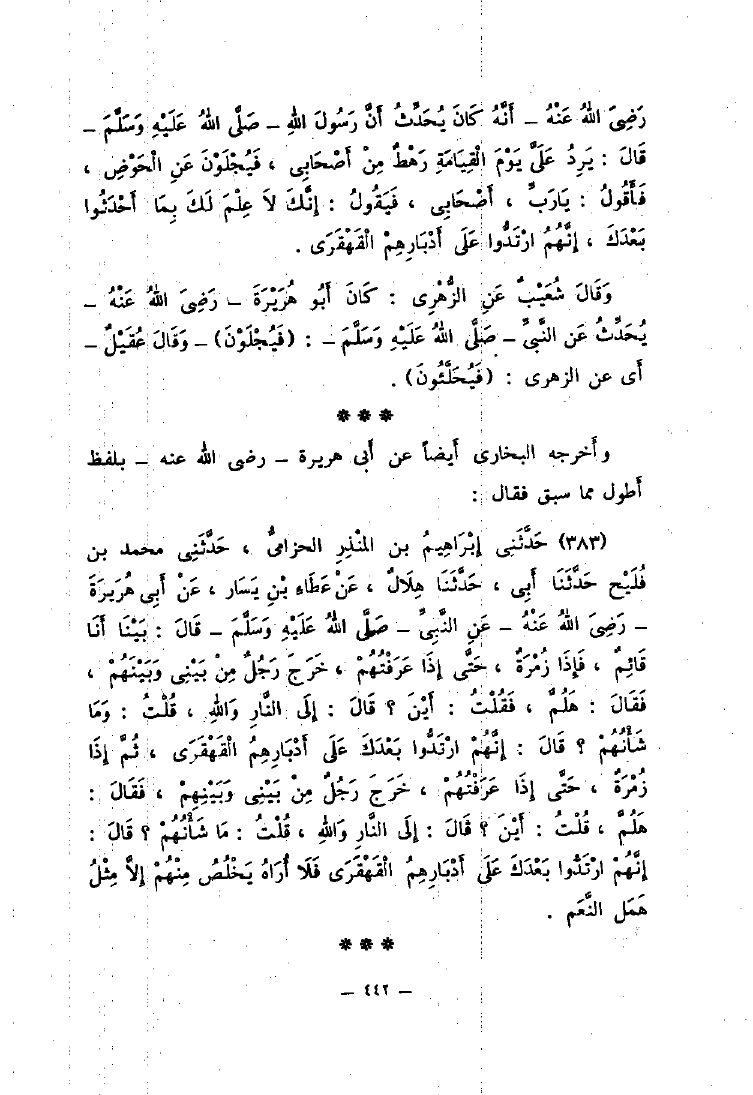 رَضِىَ اللهُ عَنْهُ – أَنَّهُ كَانَ يُحَدِّثُ أَنَّ رَسُولَ اللهِ – صَلَّى اللهُ عَلَيْهِ وَسَلَّمَ –
قَالَ : يَرِدُ عَلَىَّ يَوْمَ الْقِيَامَةِ رَهْطٌ مِنْ أَصْحَابِى ، فَيُجْلَوْنَ عَنِ الْحَوْضِ ،
فَأَقُولُ : يَارَبِّ ، أَصْحَابِى ، فَيَقُولُ : إِنَّكَ لاَ عِلْمَ لَكَ بِمَا أَحْدَثُوا
بَعْدَكَ ، إِنَّهُمُ ارْتَدُّوا عَلَى أَدْبَارِهِمْ الْقَهْقَرَى .
وَقَالَ شُعَيْبٌ عَنِ الزُّهْرِى : كَانَ أَبُو هُرَيْرَةَ – رَضِىَ اللهُ عَنْهُ –
يُحَدِّثُ عَنِ النَّبِىِّ – صَلَّى اللهُ عَلَيْهِ وَسَلَّمَ – : (فَيُجْلَوْنَ) – وَقَالَ عُقَيْلٌ –
أى عن الزهرى : (فَيُحَلَّئُونَ) .
***
وأخرجه البخارى أيضاً عن أبى هريرة – رضى الله عنه – بلفظ
أطول مما سبق فقال :
(٣٨٣) حَدَّثَنِى إِبْرَاهِيمُ بن المُنْذِرِ الحزامىُّ ، حَدَّثَنِى محمد بن
فُلَيْح حَدَّثَنَا أَبِى ، حَدَّثَنَا هِلَالٌ ، عَنْ عَطَاءِ بْنِ يَسَار ، عَنْ أَبِى هُرَيرَةَ
– رَضِىَ اللهُ عَنْهُ – عَنِ النَّبِىِّ – صَلَّى اللهُ عَلَيْهِ وَسَلَّمَ – قَالَ : بَيْنَا أَنَا
قَائِمٌ ، فَإِذَا زُمْرَةٌ ، حَتَّى إِذَا عَرَفْتُهُمْ ، خَرَجَ رَجُلٌ مِنْ بَيْنِى وَبَيْنَهُمْ ،
فَقَالَ : هَلُمَّ ، فَقُلْتُ : أَيْنَ ؟ قَالَ : إِلَى النَّارِ وَاللهِ ، قُلْتُ : وَمَا
شَأْنُهُمْ ؟ قَالَ : إِنَّهُمْ ارْتَدُّوا بَعْدَكَ عَلَى أَدْبَارِهِمُ الْقَهْقَرَى ، ثُمَّ إِذَا
زُمْرَةٌ ، حَتَّى إِذَا عَرَفْتُهُمْ ، خَرَجَ رَجُلٌ مِنْ بَيْنِى وَبَيْنِهِمْ ، فَقَالَ :
هَلُمَّ ، قُلْتُ : أَيْنَ ؟ قَالَ : إِلَى النَّارِ وَاللهِ ، قُلْتُ : مَا شَأْنُهُمْ ؟ قَالَ :
إِنَّهُمْ ارْتَدُّوا بَعْدَكَ عَلَى أَدْبَارِهِمُ الْقَهْقَرَى فَلَا أُرَاهُ يَخْلُصُ مِنْهُمْ إِلاَّ مِثْلُ
هَمَلِ النَّعَمِ .
***
– ٤٤٢ –